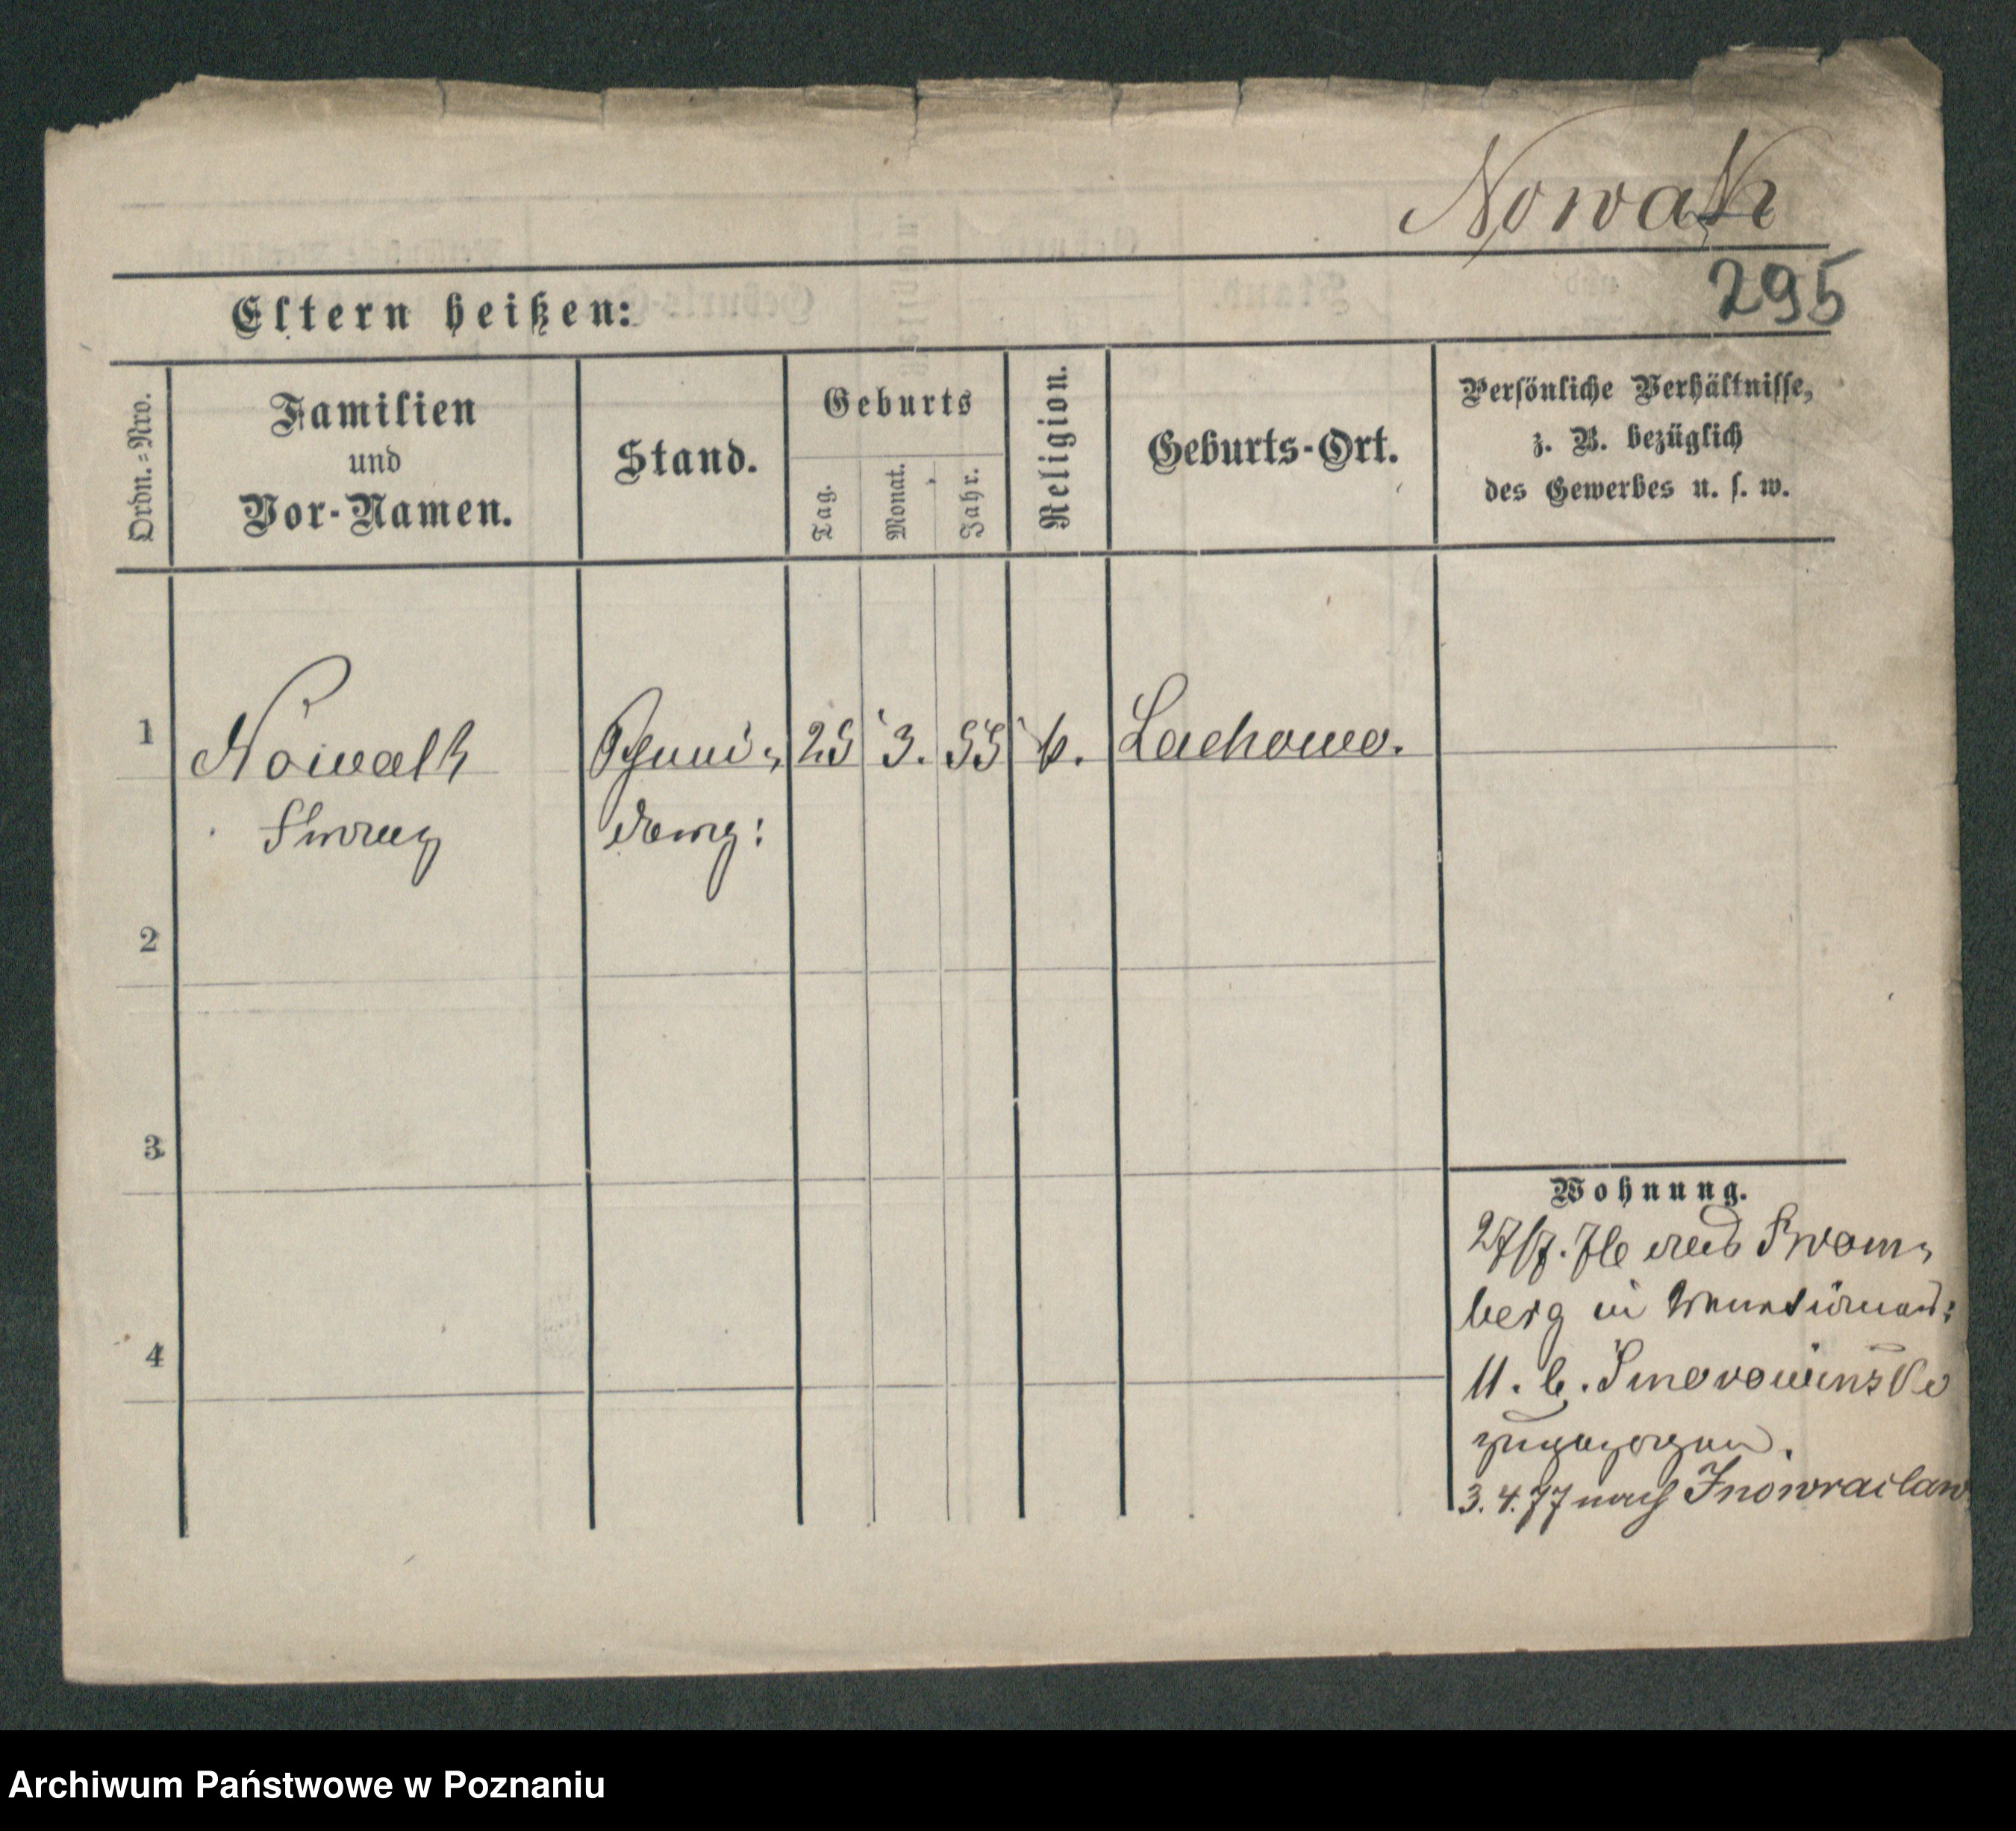 Nowak
295
Eltern heißen:
Ordn.-Nro.
Familien
und
Vor-Namen.
Stand.
Geburts
Tag.
Monat.
Jahr.
Religion.
Geburts-Ort.
Persönliche Verhältnisse,
z. B. bezüglich
des Gewerbes u. s. w.
1
Nowak
Franz
25 3. 55 k. Lachowo.
2
3
4
Wohnung.
27/7. 76 aus Brom-
berg in
11. b.
zugezogen.
3. 4. 77 nach Inowraclaw
Archiwum Państwowe w Poznaniu